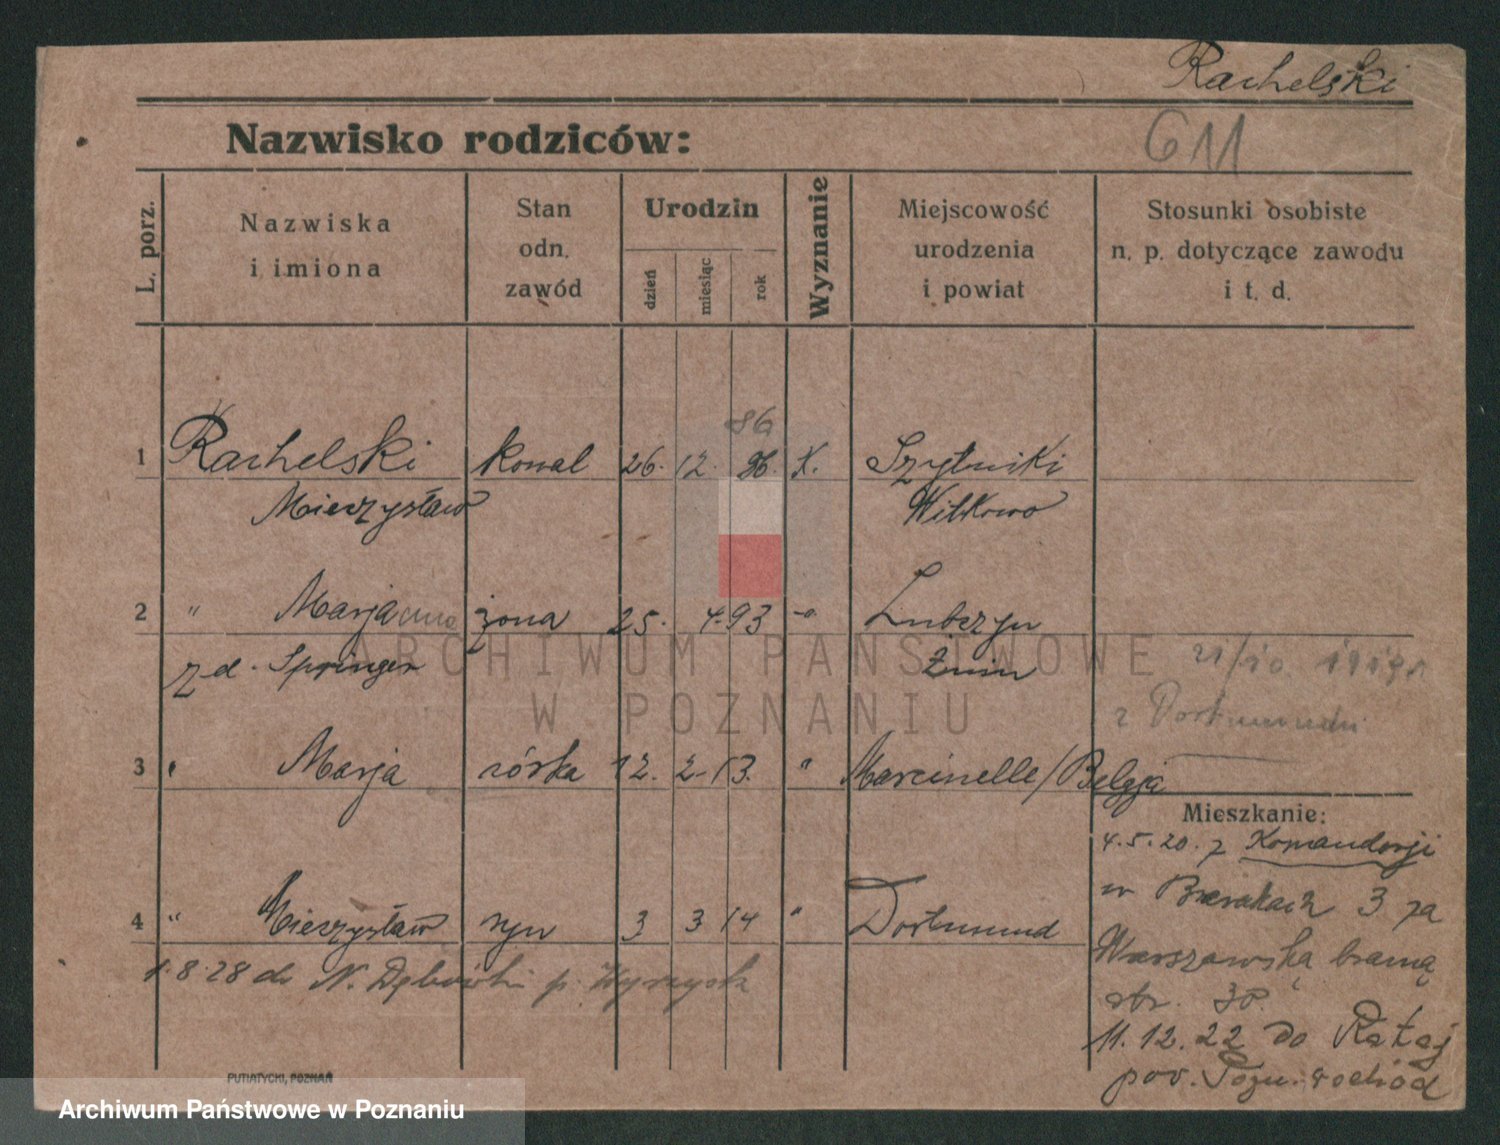 Rachelski
Nazwisko rodziców:
611
L. porz.
Nazwiska
i imiona
Stan
odn.
zawód
Urodzin
dzień
miesiąc
rok
Wyznanie
Miejscowość
urodzenia
i powiat
Stosunki osobiste
n. p. dotyczące zawodu
i t. d.
86
1 Rachelski kowal 26. 12. 86. K. Szytniki
Mieczysław Witkowo
2 " Marjanna żona 25. 4. 93 -"- Lubczyn
z d. Springer Żnin
21/10. 1919 r
z Dortmundu
3 " Marja córka 12. 2. 13. " Marcinelle/Belgja
Mieszkanie:
4.5.20. z Komandorji
w Barakach 3 za
4 " Mieczysław syn 3 3 14 " Dortmund
Warszawską bramą
1.8.28 do N. Dębówki p. Wyrzysk
str. 38.
11.12.22 do Rataj
pow. Pozn. wschód
PUTIATYCKI, POZNAŃ
ARCHIWUM PAŃSTWOWE
W POZNANIU
Archiwum Państwowe w Poznaniu